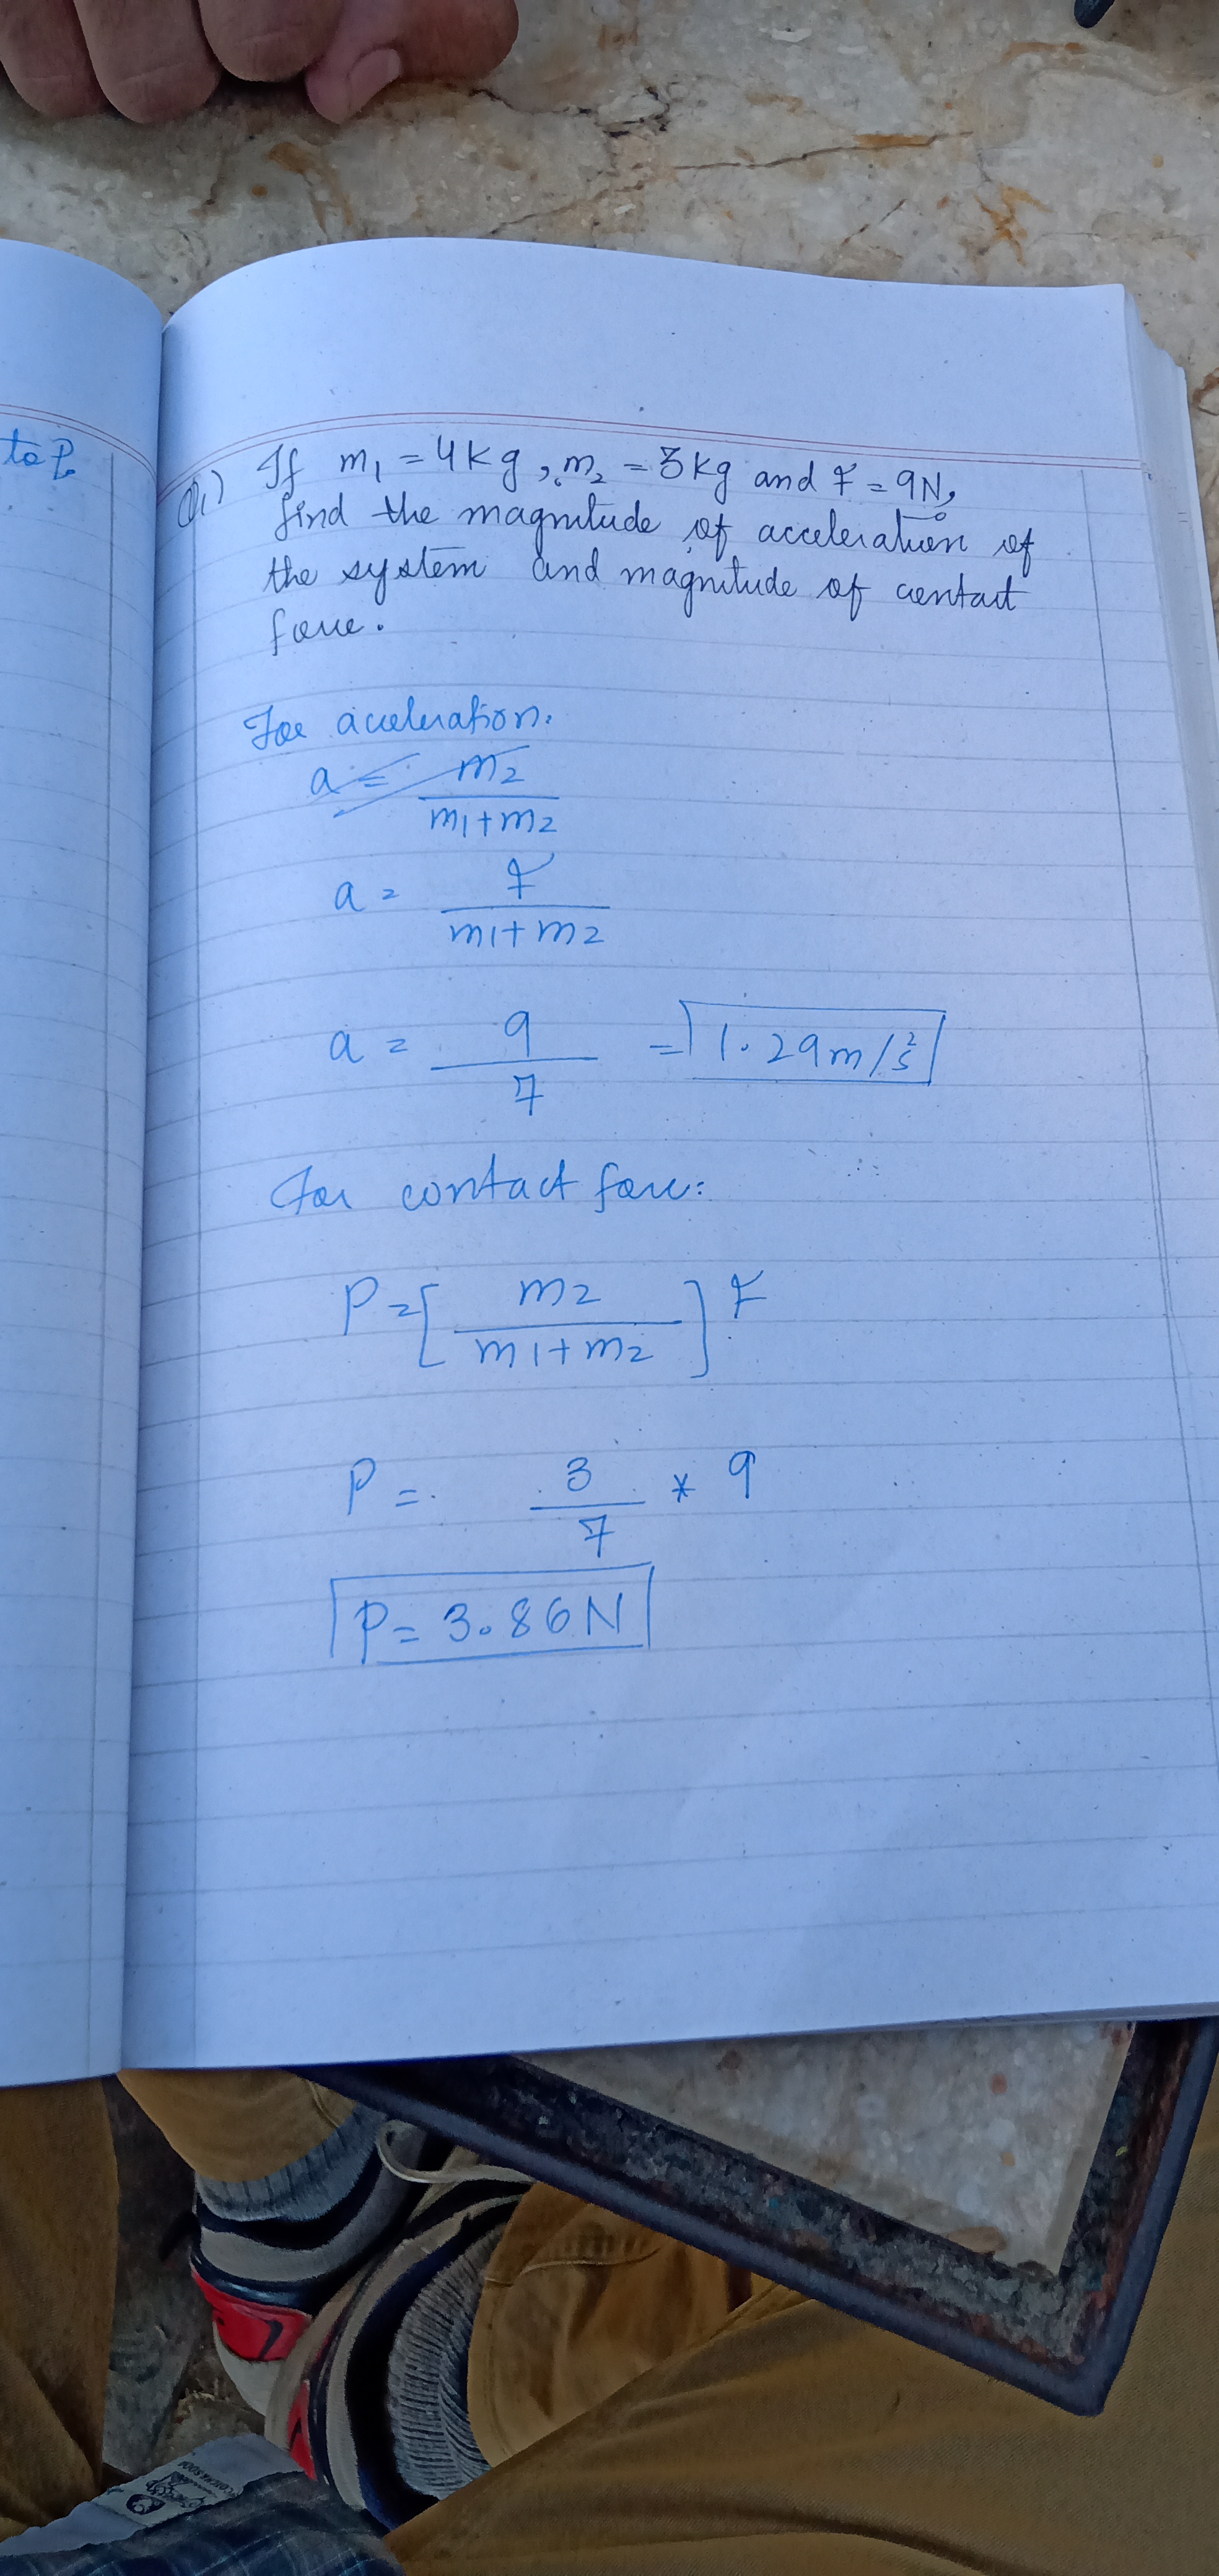 to P.
Q.1) If m₁ = 4kg, m₂ = 3kg and F = 9N,
find the magnitude of acceleration of
the system and magnitude of contact
force.
For acceleration.
a = m2
m1+m2
a = F
m1+m2
a = 9 = 1.29m/s²
7
For contact force:
P = [ m2 ] F
m1+m2
P = 3 * 9
7
P = 3.86N